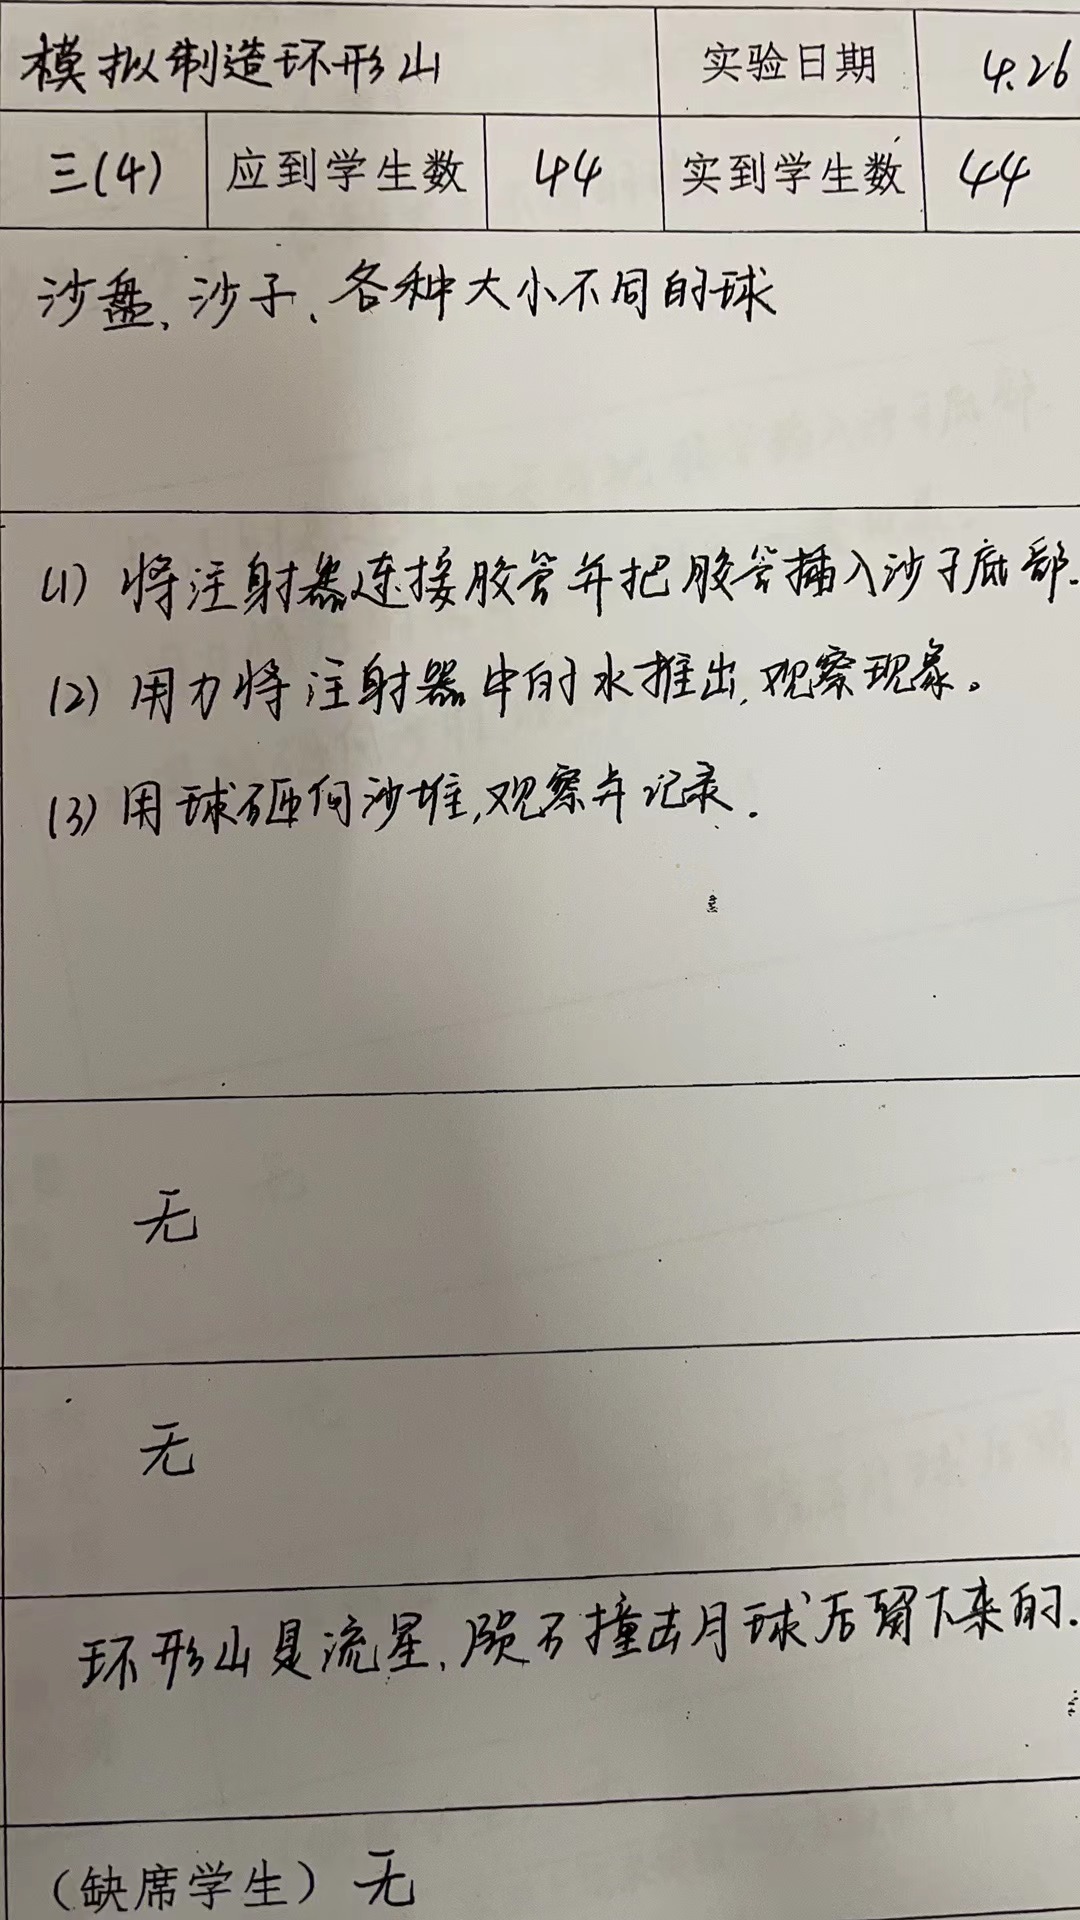 模拟制造环形山 实验日期 4.26
三(4) 应到学生数 44 实到学生数 44
沙盘、沙子、各种大小不同的球
(1) 将注射器连接胶管并把胶管插入沙子底部.
(2) 用力将注射器中的水推出,观察现象。
(3) 用球砸向沙堆,观察并记录.
无
无
环形山是流星、陨石撞击月球后留下来的.
(缺席学生) 无